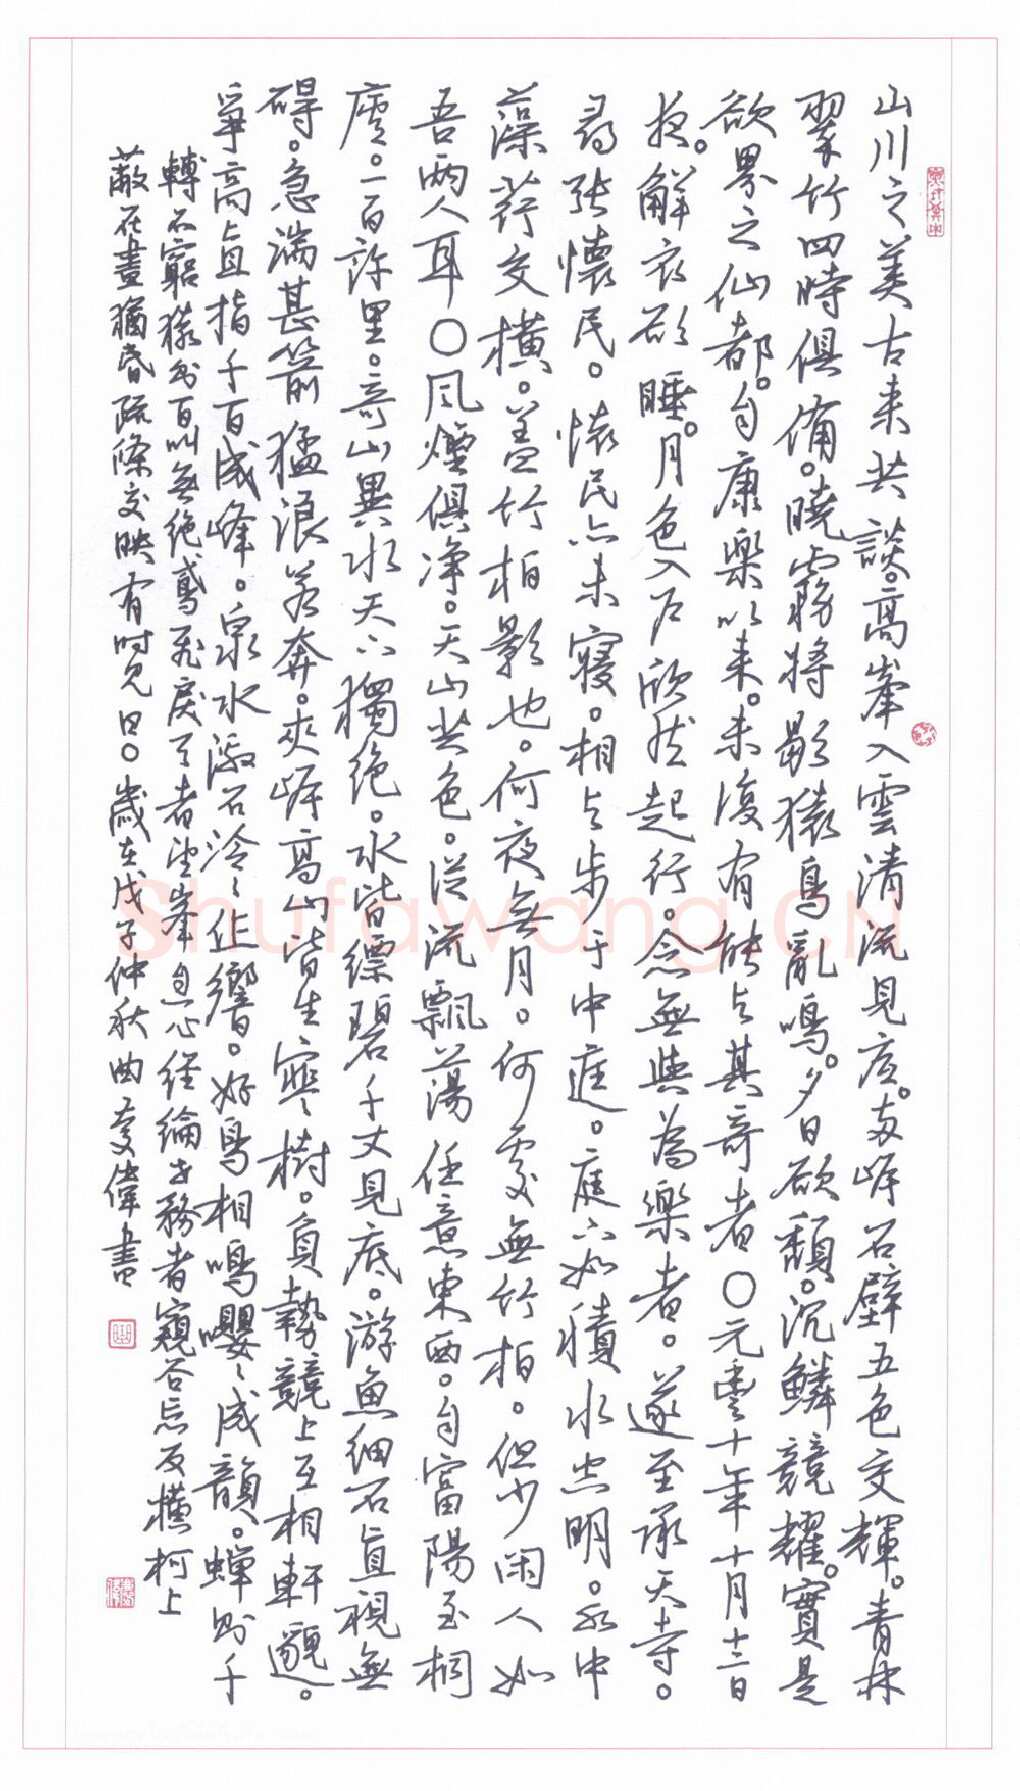 山川之美古来共談。高峯入雲清流見底。两岸石壁五色交輝。青林
翠竹四時俱備。曉霧將歇猿鳥亂鳴。夕日欲頹。沉鱗競耀。實是
欲界之仙都。自康樂以来。未復有能与其奇者〇元豐十年十月十二日
夜。解衣欲睡。月色入户欣然起行。念無與為樂者。遂至承天寺。
尋張懷民。懷民亦未寢。相与步于中庭。庭下如積水空明。水中
藻荇交横。盖竹柏影也。何夜無月。何處無竹柏。但少闲人如
吾兩人耳〇风煙俱净。天山共色。從流飄蕩任意東西。自富陽至桐
廬。一百許里。奇山異水天下獨绝。水皆縹碧千丈見底。游魚細石直視無
碍。急湍甚箭猛浪若奔。夾岸高山皆生寒樹。負勢競上互相軒邈。
爭高直指千百成峰。泉水激石泠泠作響。好鳥相鳴嚶嚶成韻。蟬則千
轉不窮猿則百叫無绝鳶飛戾天者望峯息心經綸世務者窺谷忘反横柯上
蔽在晝猶昏疏條交映有時見日。歲在戊子仲秋曲慶偉書
Shufawang.CN